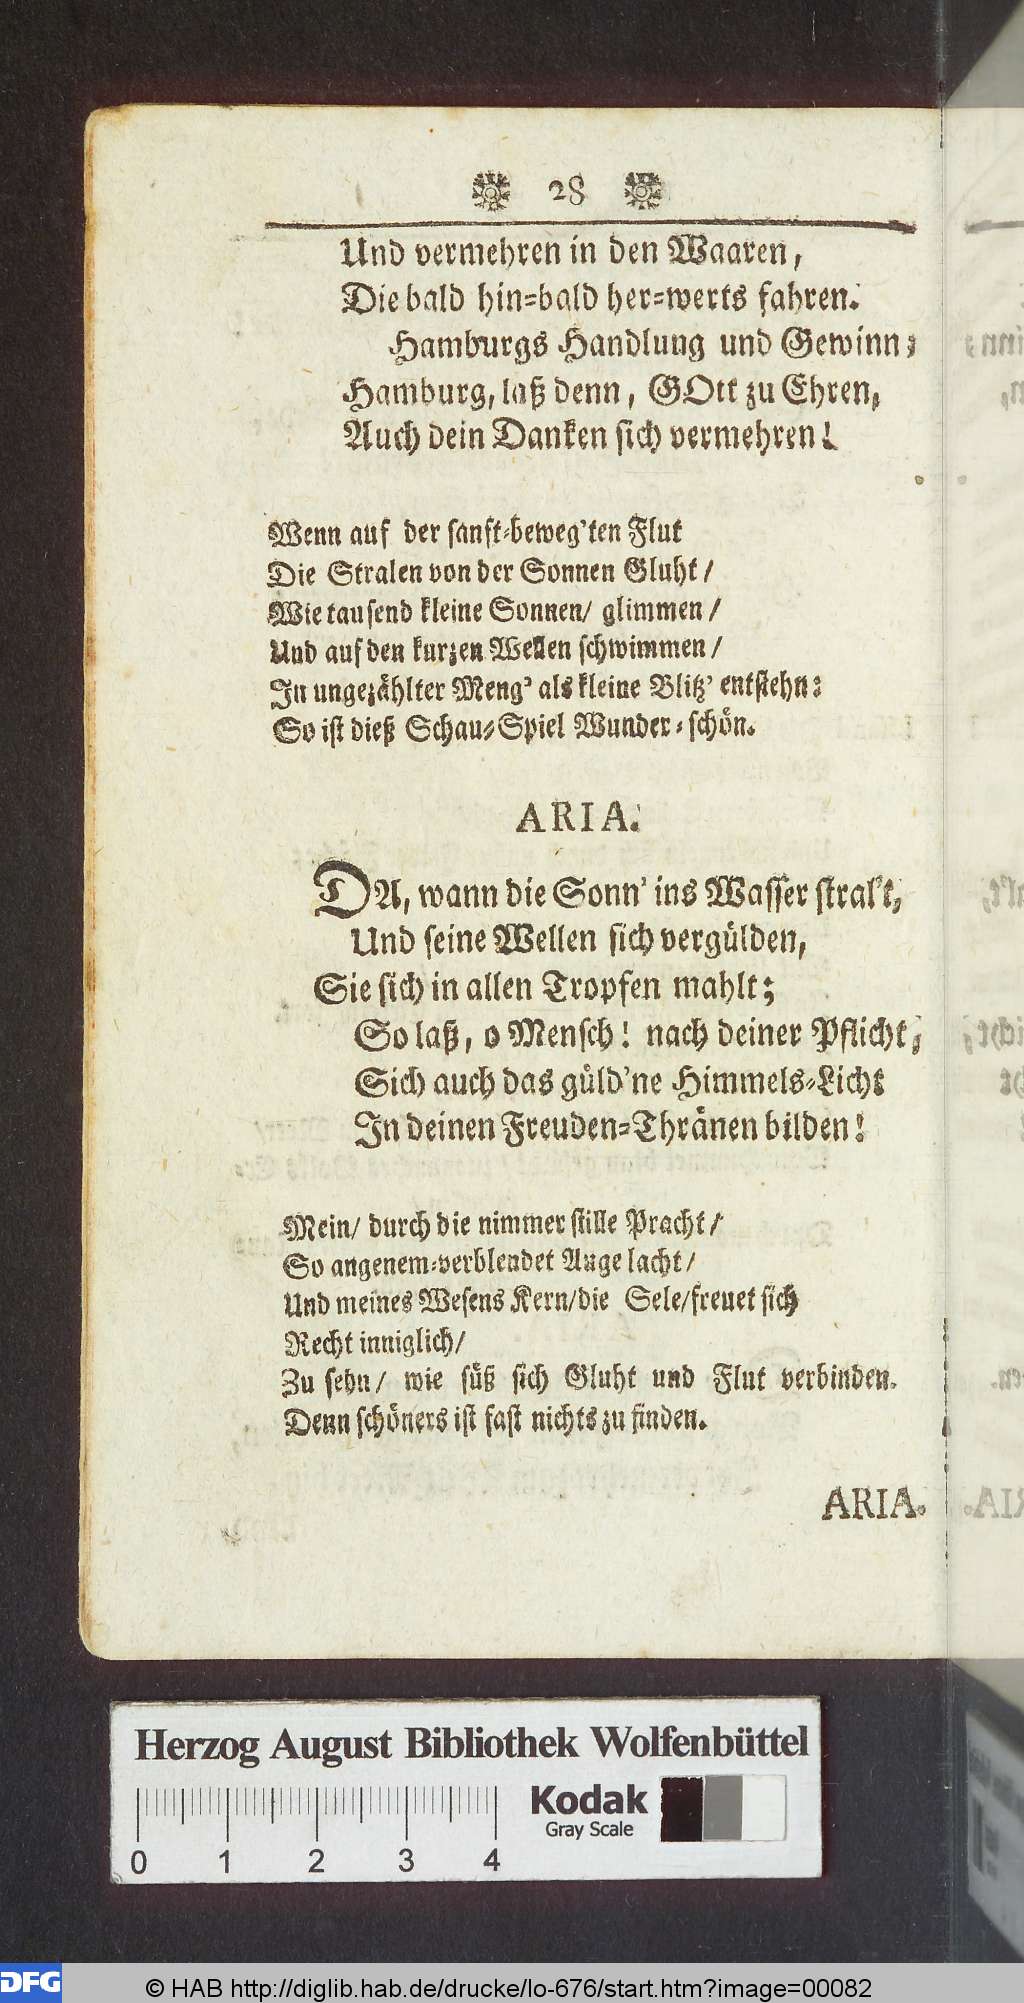 28
Und vermehren in den Waaren,
Die bald hin=bald her=werts fahren.
Hamburgs Handlung und Gewinn;
Hamburg, laß denn, GOtt zu Ehren,
Auch dein Danken sich vermehren!
Wenn auf der sanft=beweg'ten Flut
Die Stralen von der Sonnen Gluht/
Wie tausend kleine Sonnen/ glimmen/
Und auf den kurzen Wellen schwimmen/
In ungezählter Meng' als kleine Blitz' entstehn:
So ist dieß Schau=Spiel Wunder=schön.
ARIA.
DA, wann die Sonn' ins Wasser stral't,
Und seine Wellen sich vergülden,
Sie sich in allen Tropfen mahlt;
So laß, o Mensch! nach deiner Pflicht,
Sich auch das güld'ne Himmels=Licht
In deinen Freuden=Thränen bilden!
Mein/ durch die nimmer stille Pracht/
So angenem=verblendet Auge lacht/
Und meines Wesens Kern/die Sele/freuet sich
Recht inniglich/
Zu sehn/ wie süß sich Gluht und Flut verbinden.
Denn schöners ist fast nichts zu finden.
ARIA.
Herzog August Bibliothek Wolfenbüttel
Kodak
Gray Scale
0 1 2 3 4
DFG
© HAB http://diglib.hab.de/drucke/lo-676/start.htm?image=00082